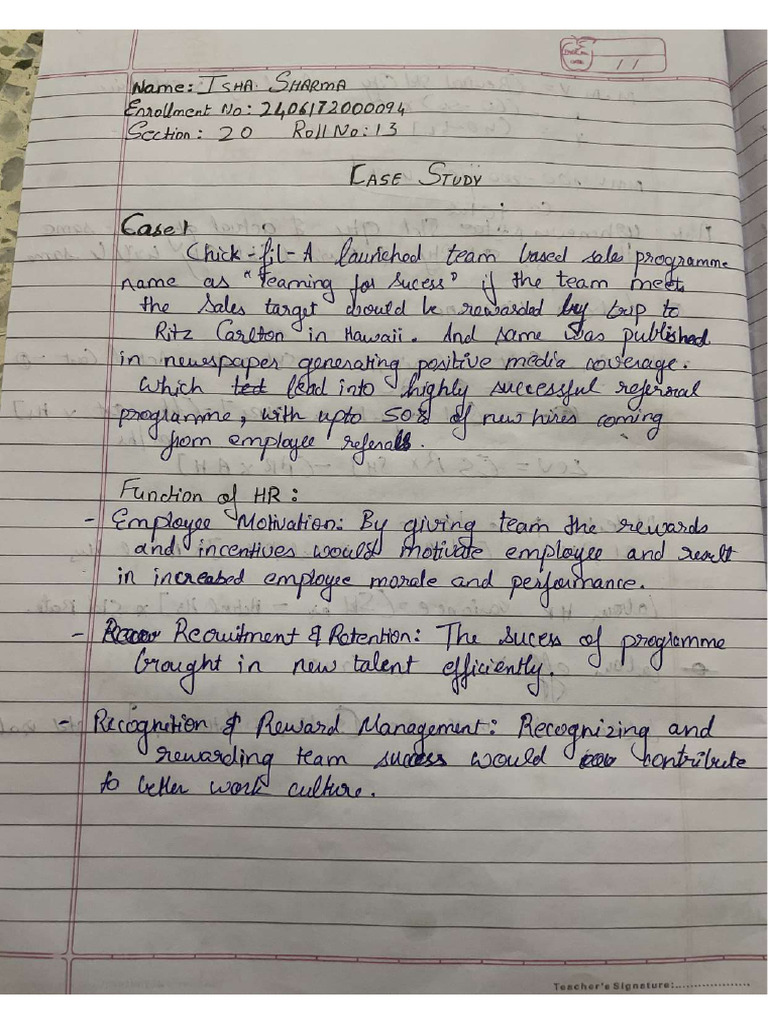 / /
Name: ISHA SHARMA
Enrollment No: 2406172000094
Section: 20 Roll No: 13
CASE STUDY
Case 1
Chick-fil-A launched team based sales programme
name as "Teaming for Sucess" if the team meets
the sales target would be rewarded by trip to
Ritz Carlton in Hawaii. And same was published
in newspaper generating positive media coverage.
Which lead into highly successful referral
programme, with upto 50% of new hires coming
from employee referals.
Function of HR:
- Employee Motivation: By giving team the rewards
and incentives would motivate employee and result
in increased employee morale and performance.
- Recruitment & Retention: The sucess of programme
brought in new talent efficiently.
- Recognition & Reward Management: Recognizing and
rewarding team success would contribute
to better work culture.
Teacher's Signature:....................